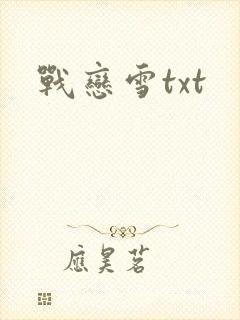 戰戀雪txt
應昊茗